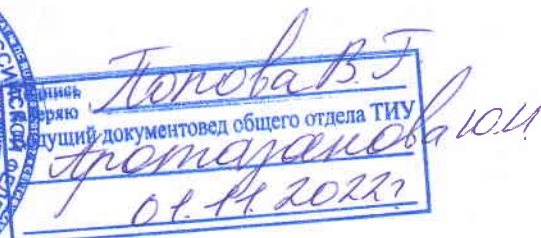 подпись Попова В.Г
заверяю
Ведущий документовед общего отдела ТИУ
Протазанова Ю.И
01.11.2022г